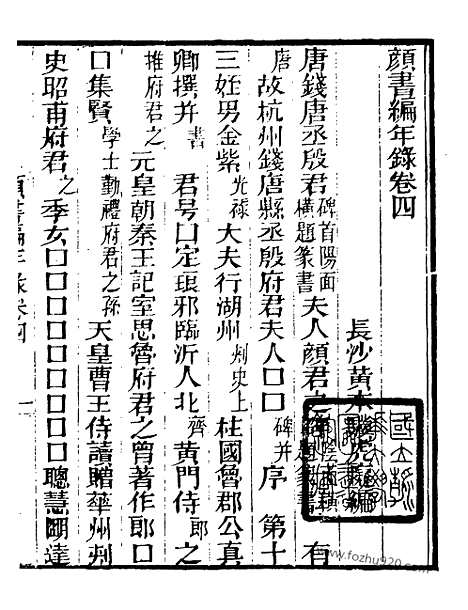 顔書編年錄卷四
長沙黃本驥虎癡編
唐錢唐丞殷君碑首陽面橫題篆書夫人顔君之碑 有
唐故杭州錢唐縣丞殷府君夫人口口碑并序 第十
三姪男金紫光祿大夫行湖州刺史上柱國魯郡公真
卿撰并書 君号口定琅邪臨沂人北齊黃門侍郎之
推府君之元皇朝秦王記室思魯府君之曾著作郎口
口集賢學士勤禮府君之孫 天皇曹王侍讀贈華州刺
史昭甫府君之季女口口口口口口口口口聰慧明達
www.fozhu920.com